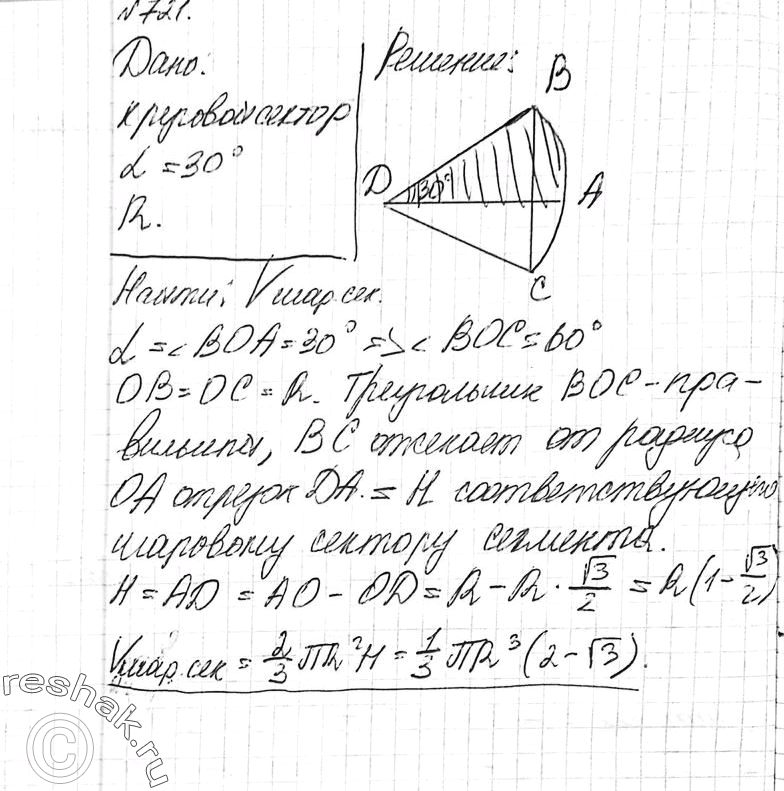 №721.
Дано:
круговой сектор
α = 30°
R.
Решение:
B
D
30°
A
C
Найти: Vшар.сек.
α = < BOA = 30° => < BOC = 60°
OB = OC = R. Треугольник BOC - пра-
вильный, BC отсекает от радиуса
OA отрезок DA = H соответствующего
шаровому сектору сегмента.
H = AD = AO - OD = R - R · √3/2 = R(1 - √3/2)
Vшар.сек = 2/3 ПR²H = 1/3 ПR³(2 - √3).
reshak.ru
©